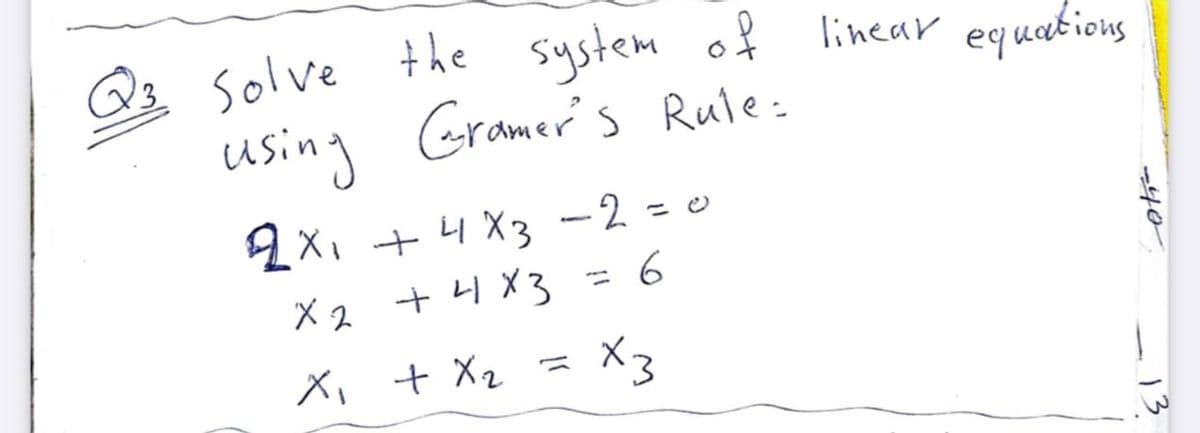 Q3 Solve the system of linear equations
using Gramer's Rule:
2x₁ + 4x₃ - 2 = 0
x₂ + 4x₃ = 6
x₁ + x₂ = x₃
-40
- 13